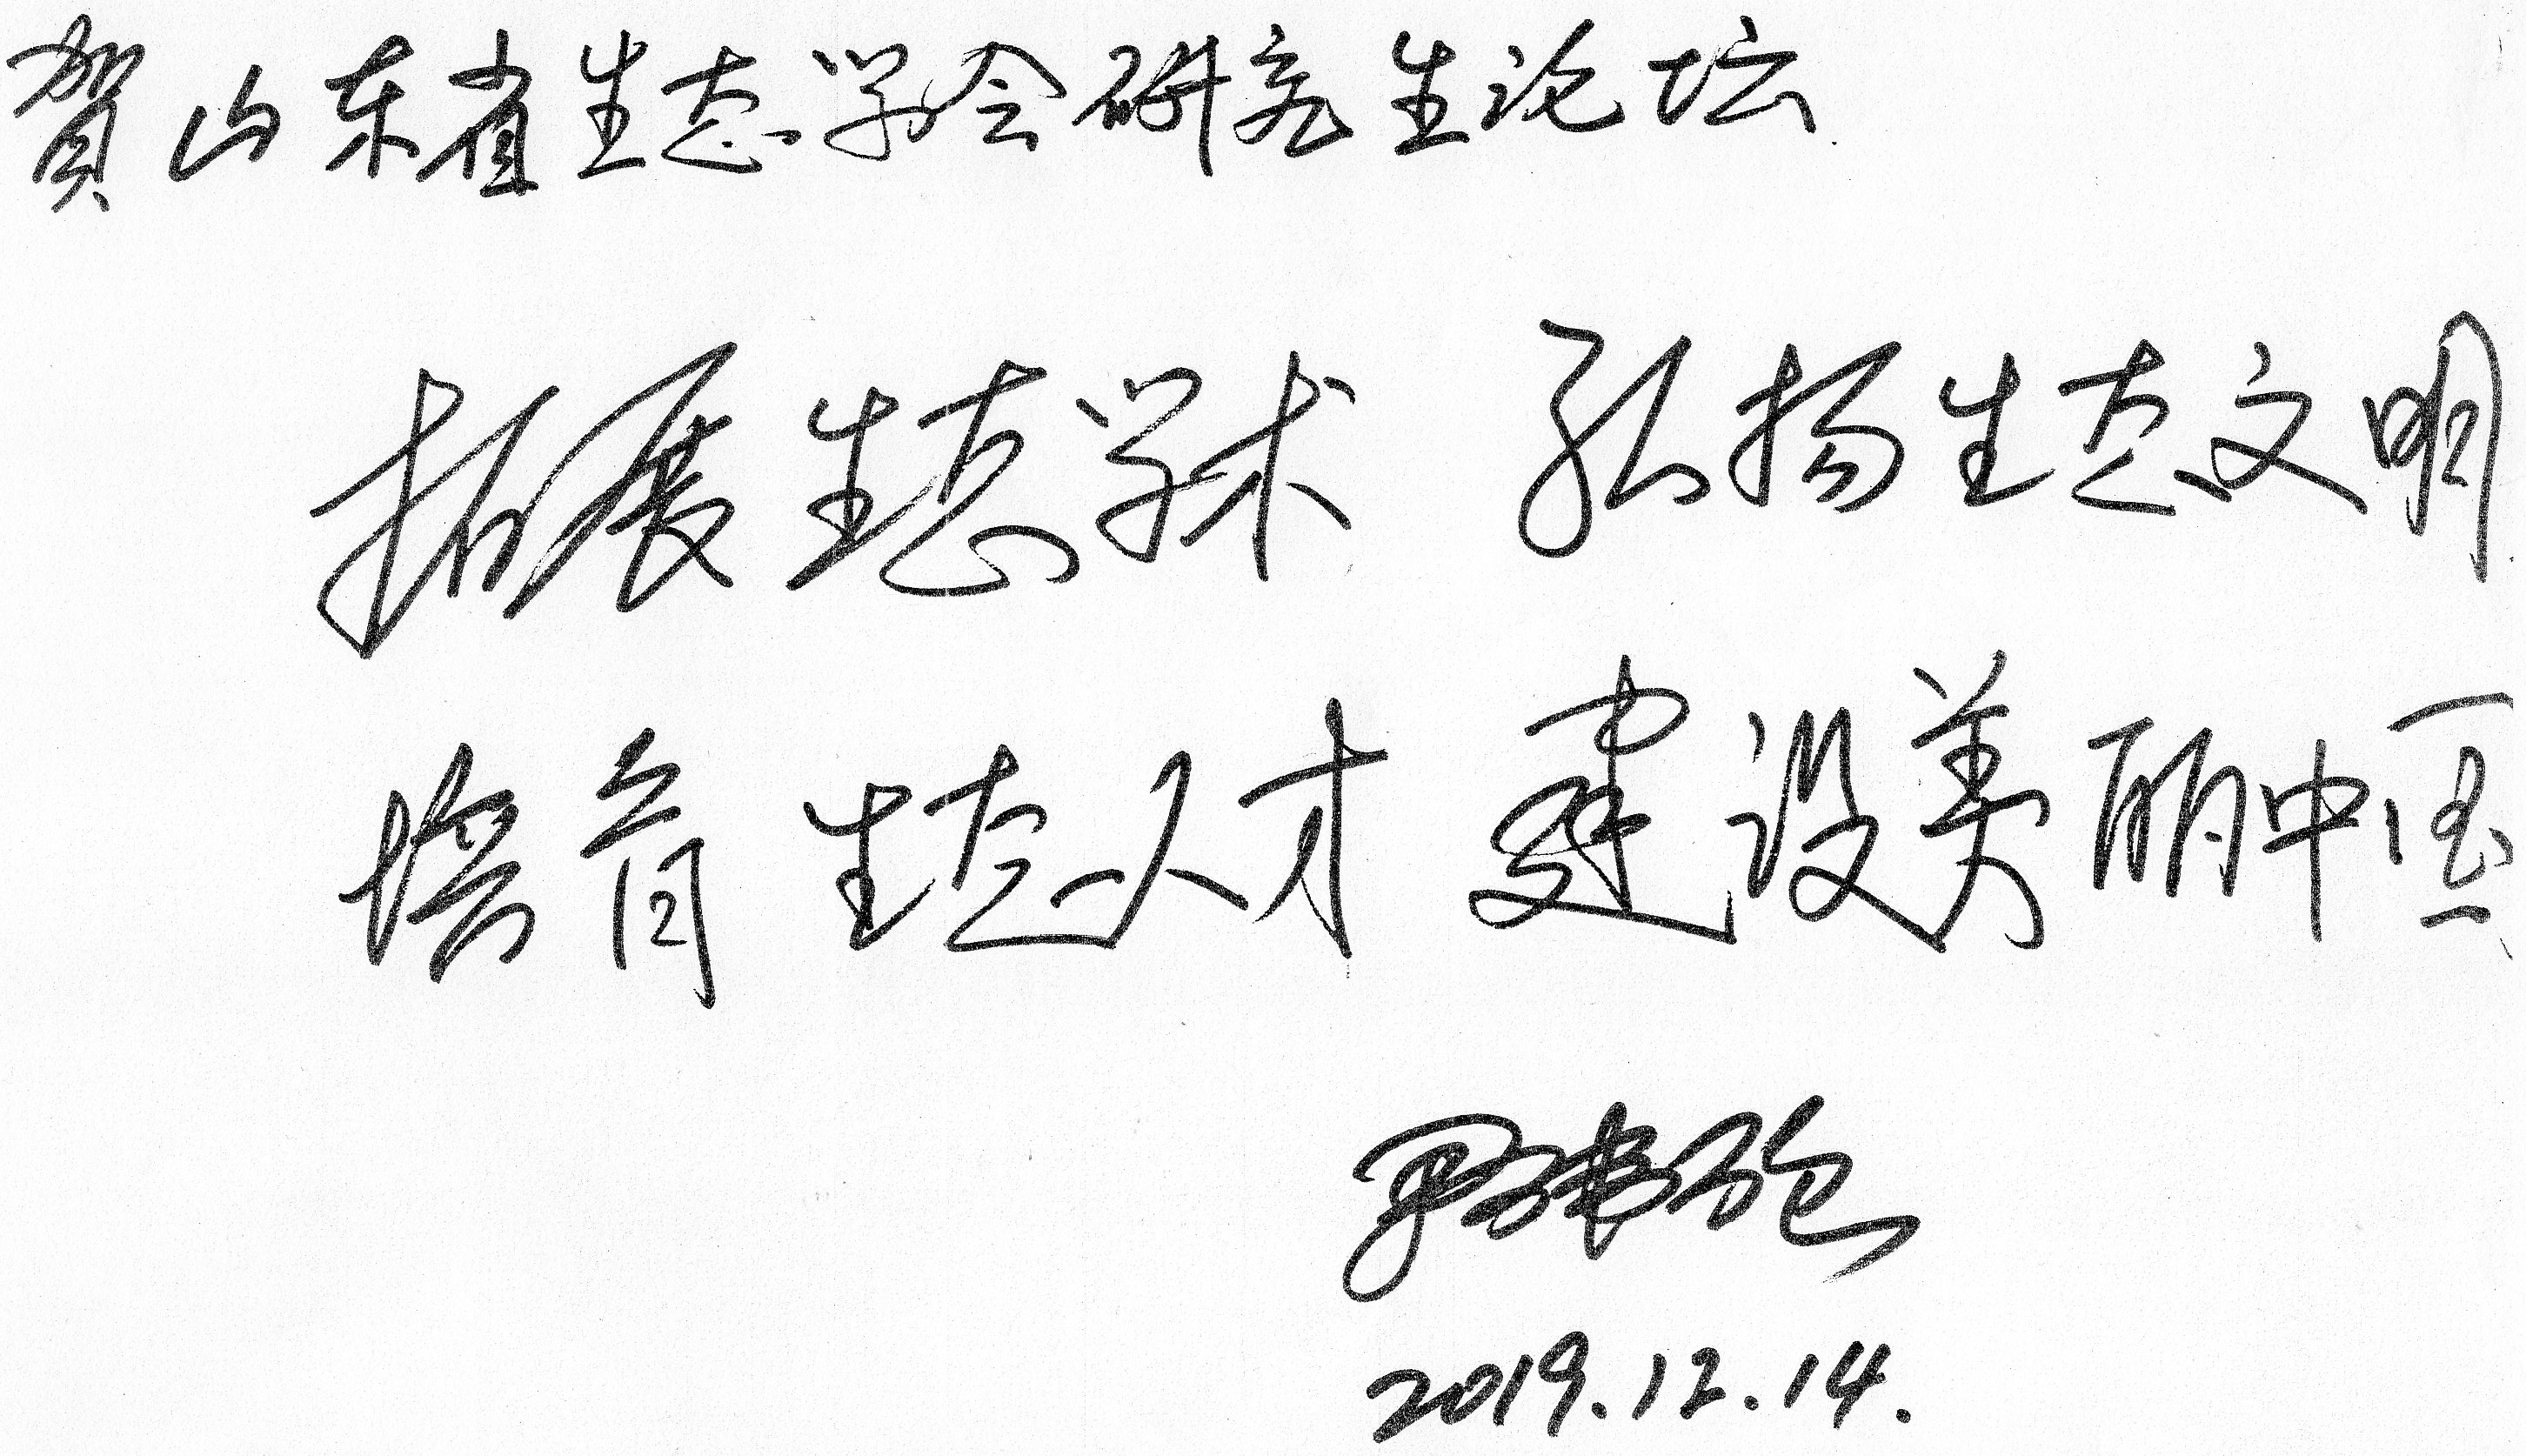 贺山东省生态学会研究生论坛
拓展生态学术 弘扬生态文明
培育生态人才 建设美丽中国
2019.12.14.